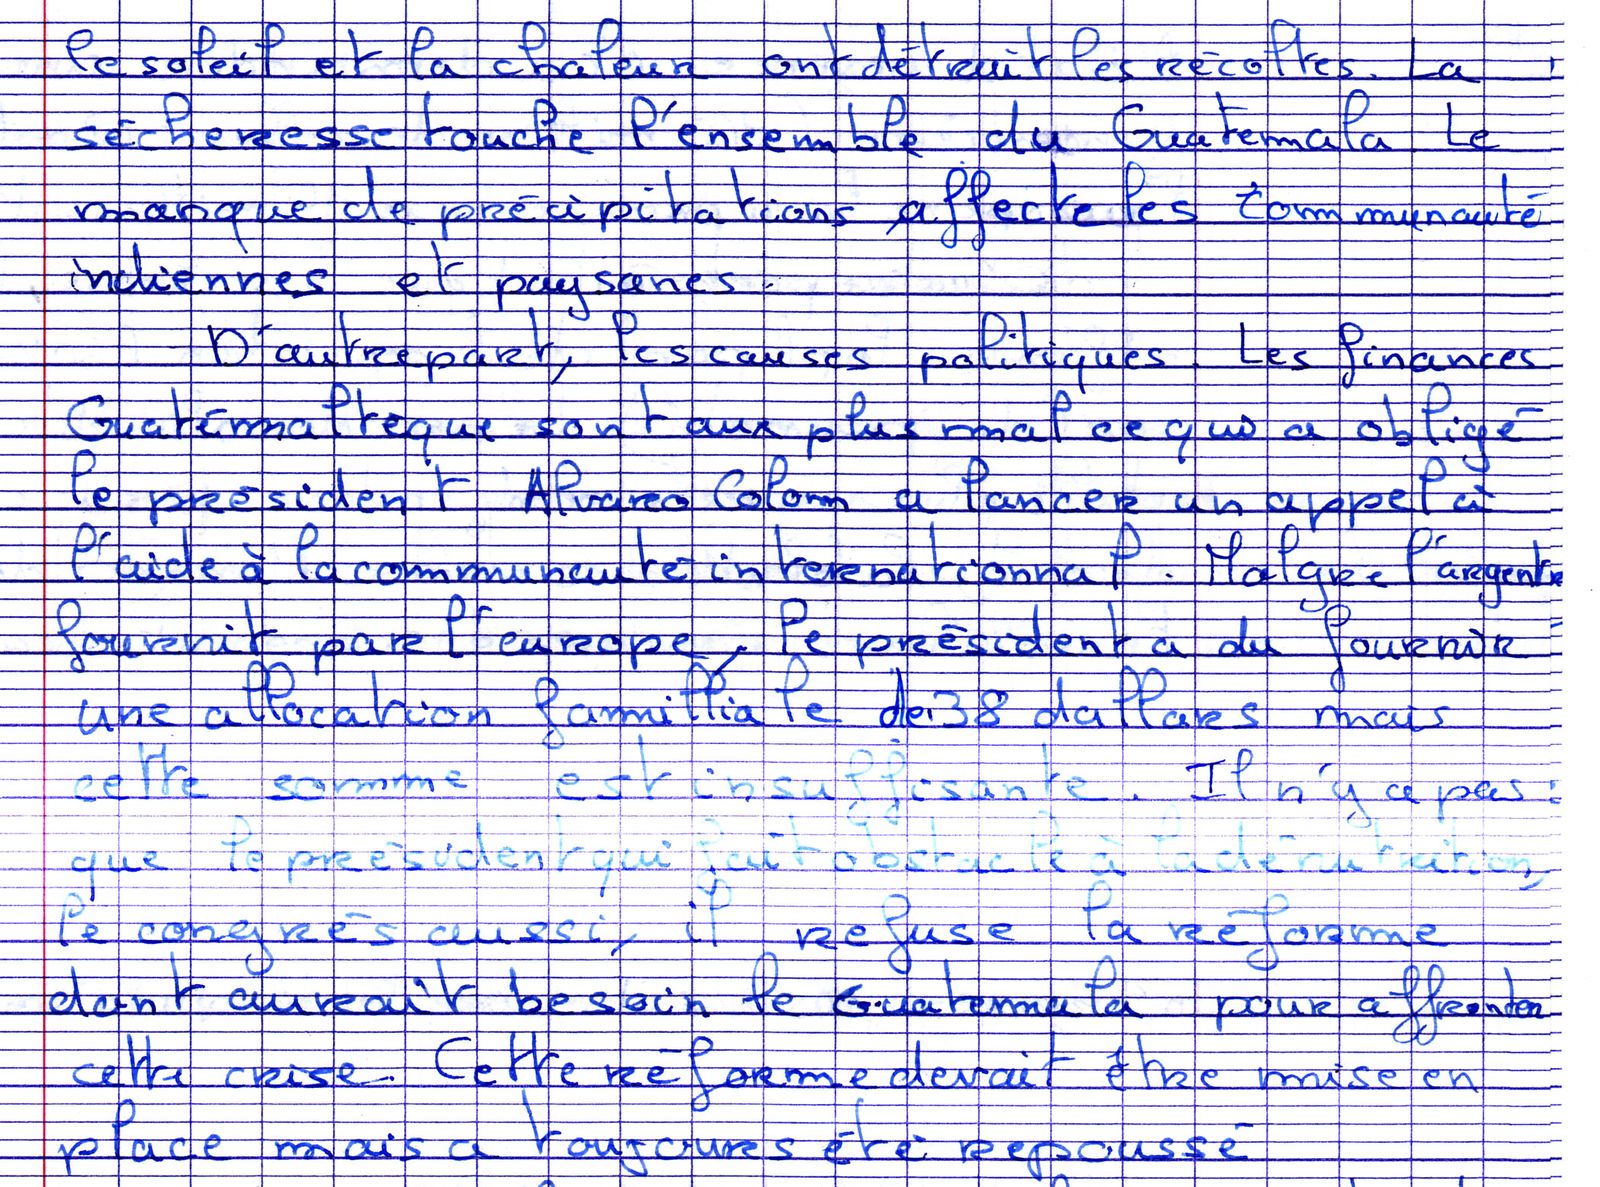 le soleil et la chaleur ont détruit les récoltes. La
sécheresse touche l'ensemble du Guatemala Le
manque de précipitations affecte les communauté
indiennes et paysanes.
D'autre part, les causes politiques. Les finances
Guatémaltèque sont aux plus mal ce qui a obligé
le président Alvaro Colom a lancer un appel à
l'aide à la communauté internationnal. Malgre l'argent
fournit par l'europe, le président a du fournir
une allocation familliale de 38 dollars mais
cette somme est insuffisante. Il n'y a pas
que le président qui fait obstacle à la dénutrition,
le congrés aussi, il refuse la réforme
dont aurait besoin le Guatemala pour affronter
cette crise. Cette réforme devait être mise en
place mais a toujours été repoussé